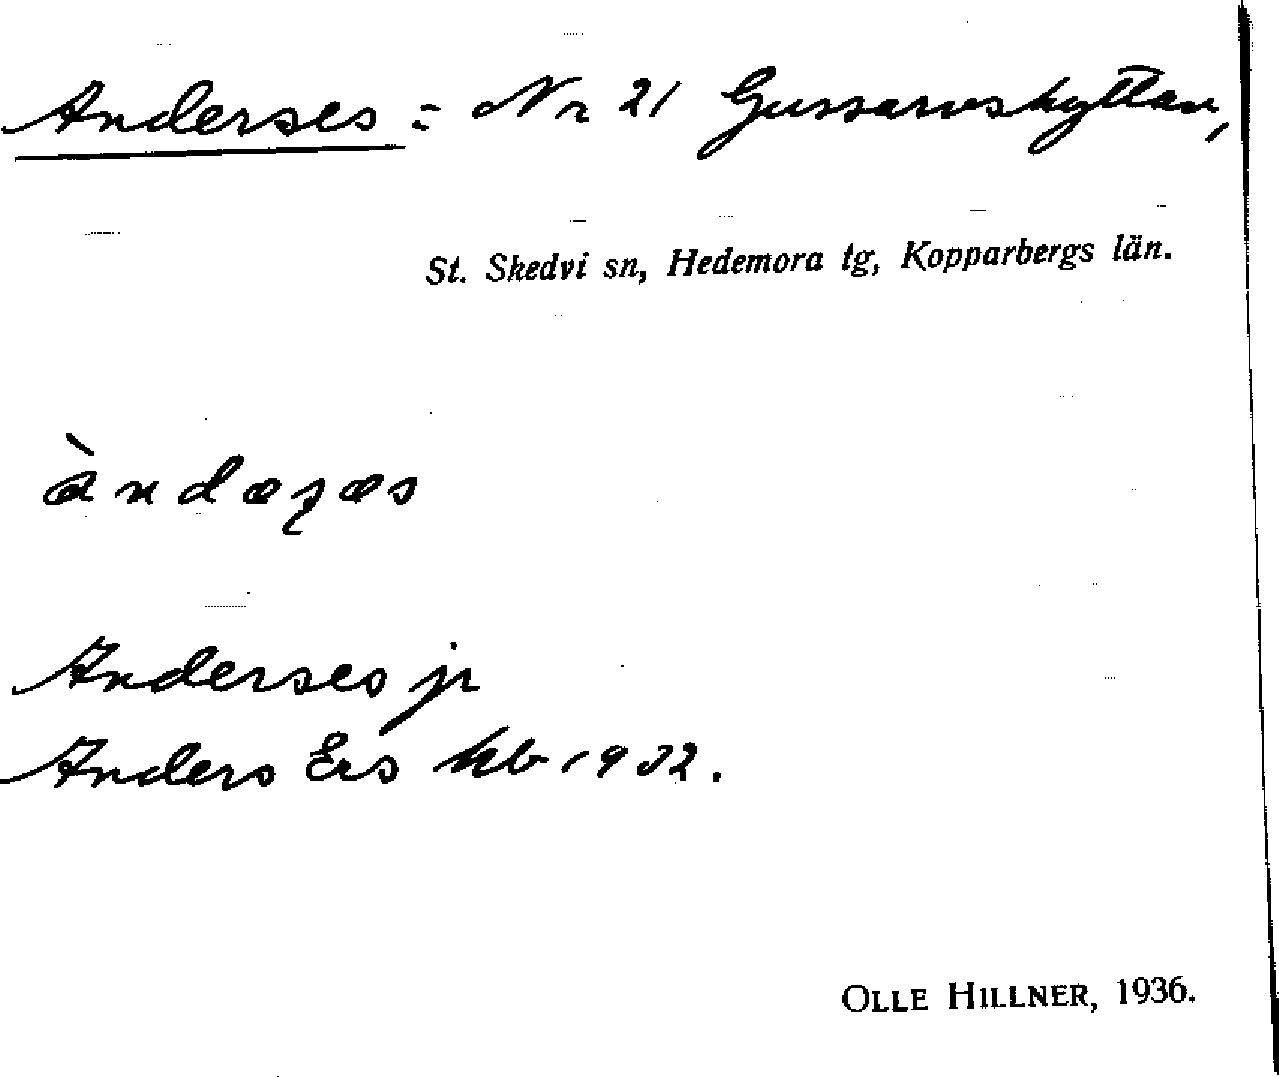 Anderses = Nr 21 Gussarvshyttan,
St. Skedvi sn, Hedemora tg, Kopparbergs län.
àndæʂæs
Anderses jr
Anders Ers kb 1932.
OLLE HILLNER, 1936.